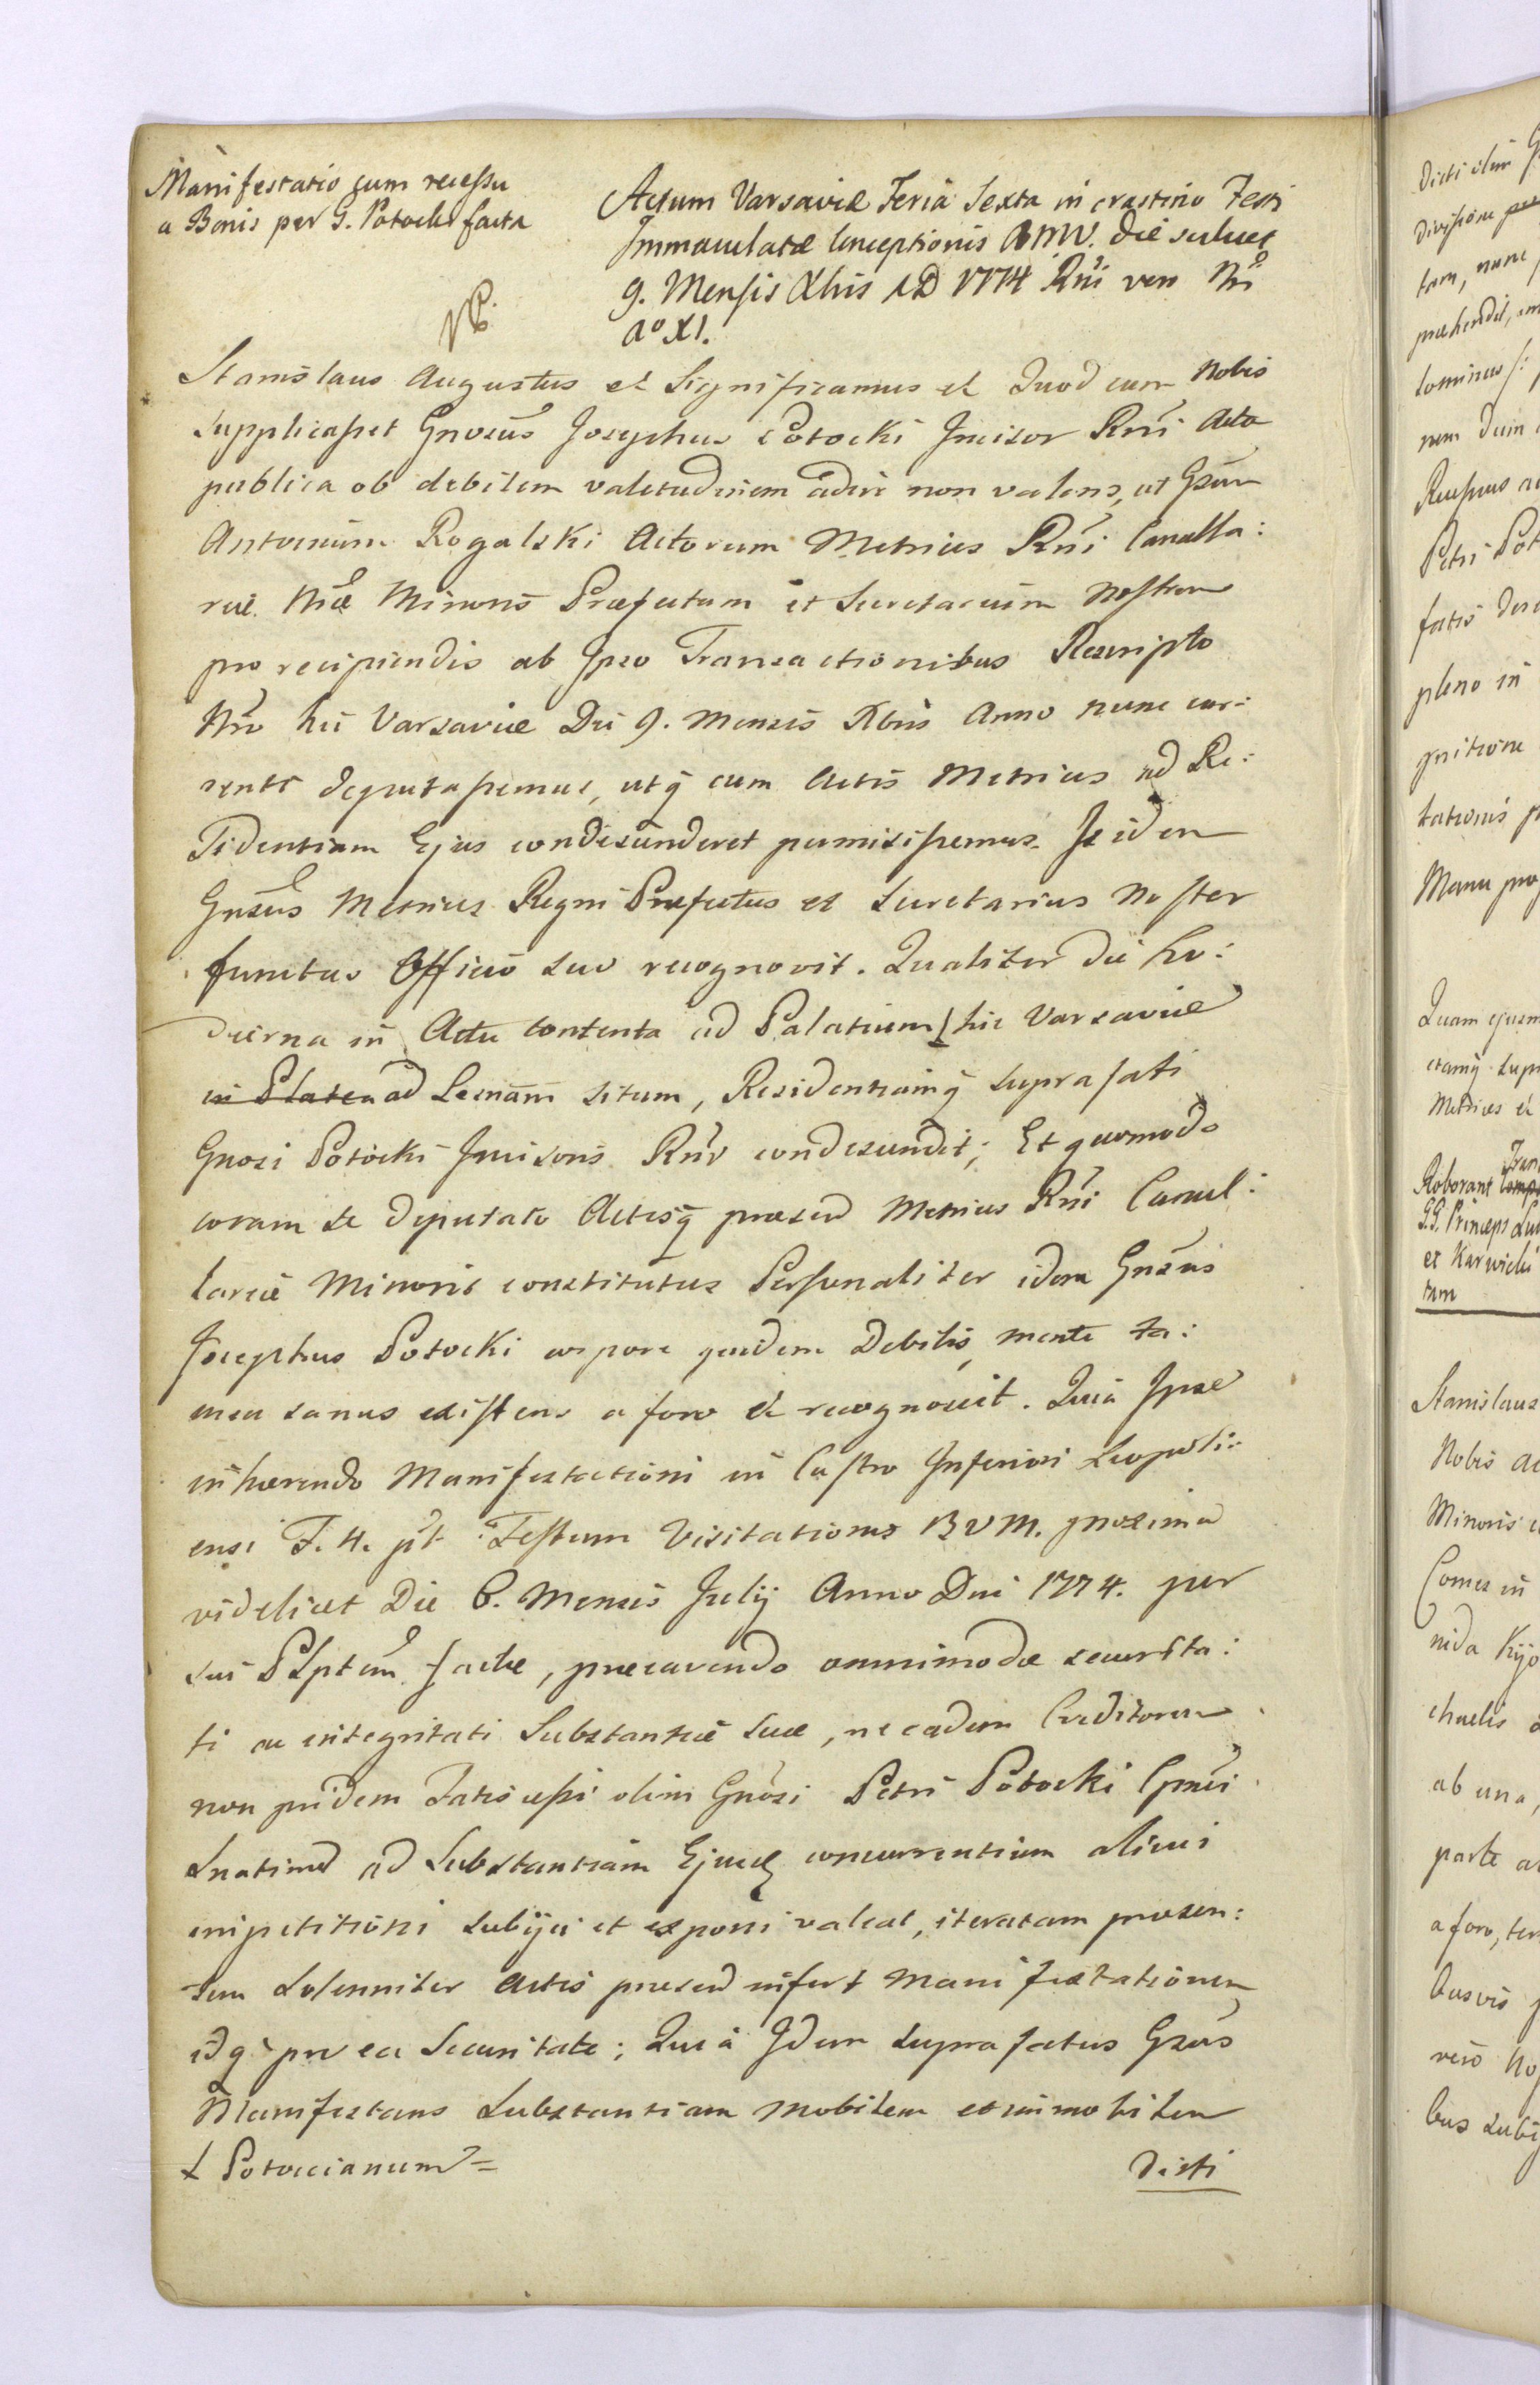 Manifestatio cum recessu
a Bonis per G. Potocki facta
Actum Varsaviæ Feria Sexta in crastino Festi
Immaculatæ Conceptionis BMV. die scilicet
9. Mensis Xbris AD 1774 Rni vero Nri
aº XI.
Stanislaus Augustus et Significamus et Quod cum Nobis
supplicasset Gnosus Josephus Potocki Incisor Rni Acta
publica ob debilem valetudinem adire non valens, ut Gsum
Antonium Rogalski Actorum Metrices Rni Cancella:
riæ Nræ Minoris Præfectum et Secretarium Nostrum
pro recipiendis ab Ipso Transactionibus Rescripto
Nro hic Varsaviæ Die 9. Mensis Xbris Anno nunc cur:
rente deputassemus, utq cum Actis Metrices ad Re:
sidentiam Ejus condescenderet permisissemus. Is idem
Gnsus Metrices Regni Præfectus et Secretarius Noster
functus Officio suo recognovit. Qualiter die ho:
dierna in Actu contenta ad Palatium hic Varsaviæ
in Platea ad Lesnam situm, Residentiamq suprafati
Gnosi Potocki Incisoris Rni condescendit; Et quomodo
coram se deputato Actisq præsen Metrices Rni Cancel:
lariæ Minoris constitutus Personaliter idem Gnsus
Josephus Potocki corpore quidem debilis, mente ta:
men sanus existens a foro et recognovit. Quia Ipse
inhærendo Manifestationi in Castro Inferiori Leopoli:
ensi F. 4. pt Festum Visitationis BVM. proxima
videlicet Die 6. Mensis Julij Anno Dni 1774. per
sui Plptem factæ, præcavendo omnimodæ securita:
ti ac integritati Substantiæ suæ, ne eadem Creditorum
non pridem Fatis cessi olim Gnosi Petri Potocki Cpnei
Snatinen ad Substantiam Ejusd concurrentium alicui
impetitioni subijci et exponi valeat, iteratam præsen:
tem Solenniter Actis præsen infert Manifestationem
idq pro ea Securitate; Quia Idem suprafatus Gsus
Manifestans Substantiam mobilem et immobilem
Potoccianum =
Dicti
dicti olim
divisione
tam, nunc
præhendit,
nem dum
Recessus
Petri Pot
fatis
pleno in
gnitione
tationis
Manu
Quam ejusm
etamq
Metrices et
Tran
Roborant
GG. Princeps
et Karwicki
tum
Stanislaus
Nobis
Minoris
Comes in
nida Kijo
ab una,
parte
a foro,
busvis
vero
bus